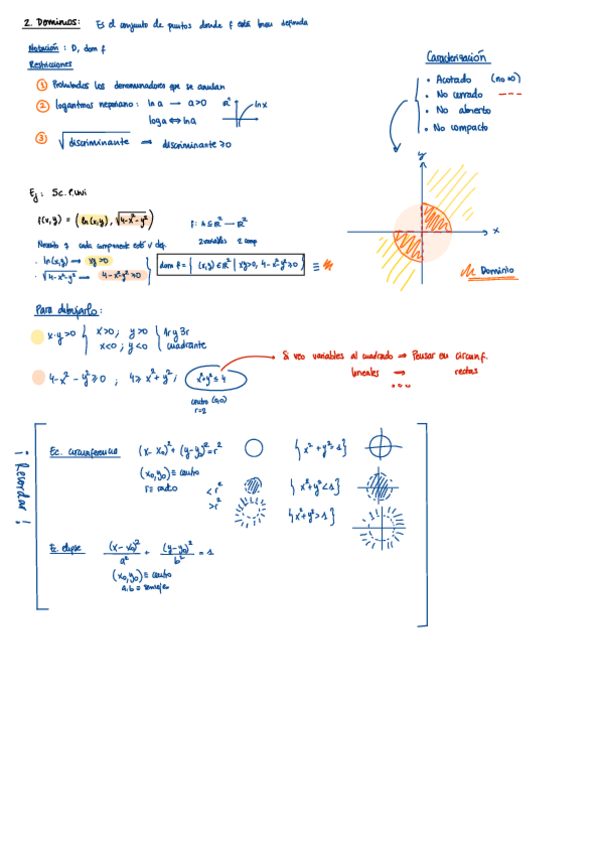 2. Dominios: Es el conjunto de puntos donde f está bien definida
Notación: D, dom f
Restricciones
① Prohibidos los denominadores que se anulan
② logaritmos neperiano: ln a → a>0 lnx
log a ↔ ln a
③ √discriminante ⇒ discriminante ≥0
Caracterización
• Acotado (no ∞)
• No cerrado ---
• No abierto
• No compacto
y
x
Dominio
Ej:
f(x,y) = (ln(x,y), √4-x²-y²) f: A⊆ℝ² → ℝ²
2 variables 2 comp
Necesito q cada componente esté v def.
· ln(x,y) → xy>0
· √4-x²-y² → 4-x²-y²≥0
dom f = { (x,y)∈ℝ² | xy>0, 4-x²-y²≥0 } ≡
Para dibujarlo:
x·y>0 { x>0; y>0 } 1r y 3r
x<0; y<0 cuadrante
4-x²-y²≥0 ; 4≥x²+y²; x²+y²≤4
centro (0,0)
r=2
Si veo variables al cuadrado ⇒ Pensar en circunf.
lineales → rectas
...
¡Recordar!
Ec. circunferencia (x-x₀)²+(y-y₀)²=r² {x²+y²=1}
(x₀,y₀)≡ centro
r≡ radio
<r² {x²+y²<1}
>r² {x²+y²>1}
Ec. elipse (x-x₀)²/a² + (y-y₀)²/b² = 1
(x₀,y₀)≡ centro
a,b = semiejes